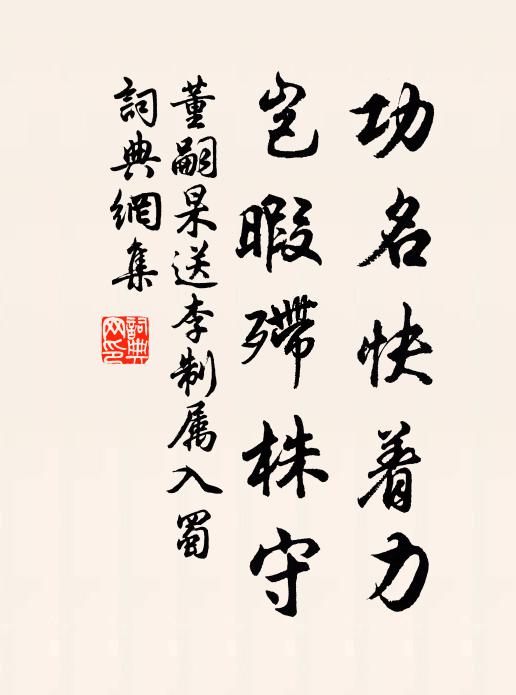 功名快着力
岂暇殢株守
董嗣杲送李制属入蜀
詞典網集
詞典
网印